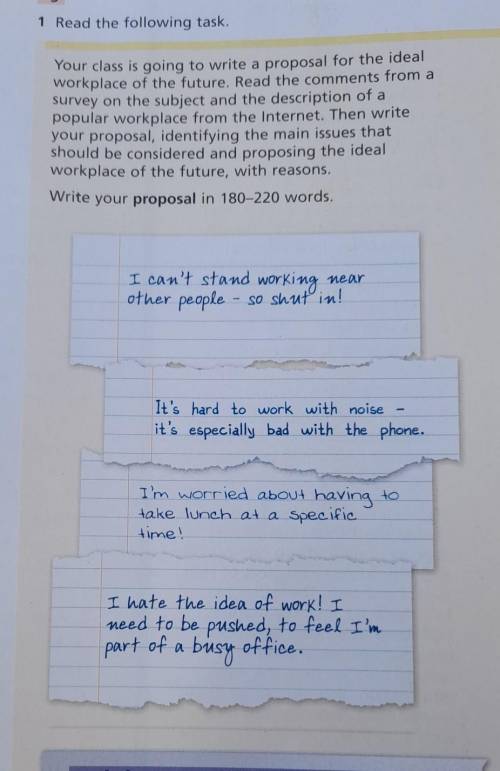 1 Read the following task.
Your class is going to write a proposal for the ideal
workplace of the future. Read the comments from a
survey on the subject and the description of a
popular workplace from the Internet. Then write
your proposal, identifying the main issues that
should be considered and proposing the ideal
workplace of the future, with reasons.
Write your proposal in 180–220 words.
I can't stand working near
other people – so shut in!
It's hard to work with noise –
it's especially bad with the phone.
I'm worried about having to
take lunch at a specific
time!
I hate the idea of work! I
need to be pushed, to feel I'm
part of a busy office.